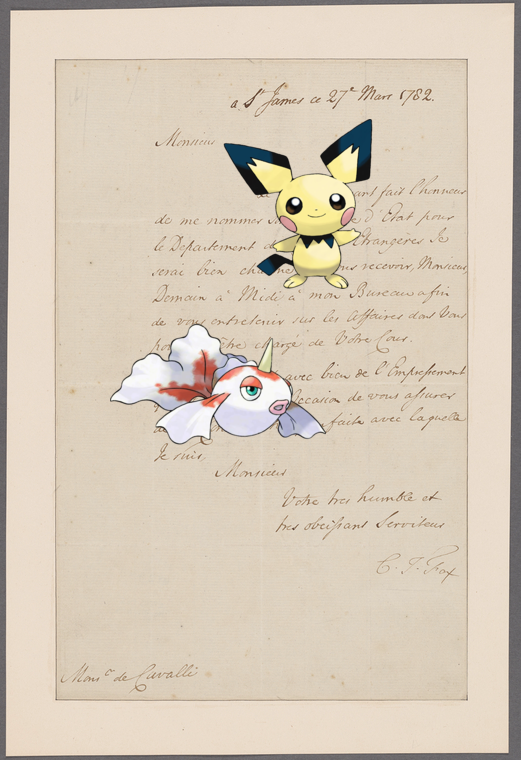 a St James ce 27e Mars 1782.
Monsieur
ant fait l'honneur
de me nommer d'Etat pour
le Departement d Etrangères Je
serai bien cha ous recevoir, Monsieur,
Demain à Midi à mon Bureau afin
de vous entretenir sur les Affaires dont Vous
po tre chargé de Votre Cour.
avec bien de l'Empressement
ccasion de vous assurer
faite avec laquelle
Je suis,
Monsieur
Votre tres humble et
tres obeissant Serviteur
C. J. Fox
Monsr de Cavalli